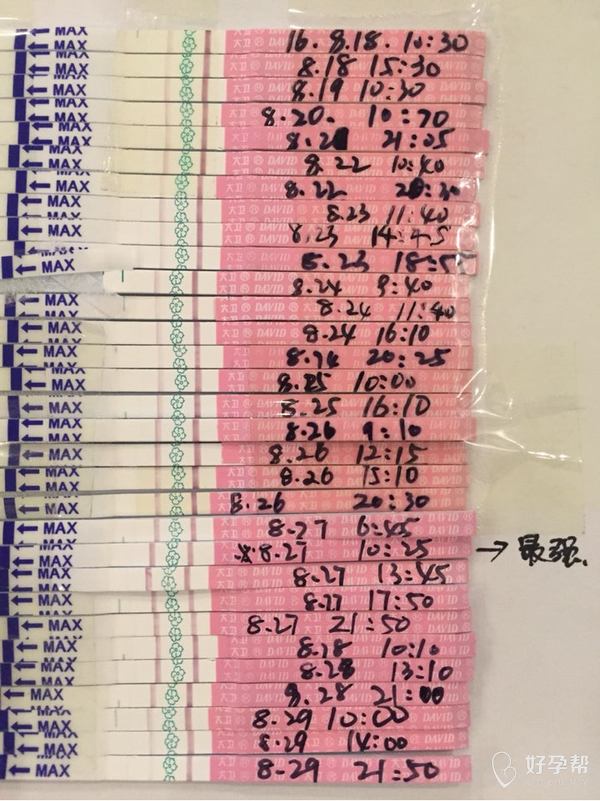 MAX 16. 8.18. 10:30
MAX 8.18 15:30
MAX 8.19 10:30
MAX 8.20. 10:70
MAX 21:05
MAX 8.22 10:40
MAX 大卫 DAVID 8.22
MAX 8.23 11:40
MAX 8.23 14:45
MAX 8.23 18:55
MAX 8.24 9:40
MAX 8.24 11:40
MAX 8.24 16:10
MAX 8.24 20:25
MAX 8.25 10:00
MAX 8.25 16:10
MAX 8.26 9:10
MAX 8.26 12:15
MAX 8.26 15:10
MAX 8.26 20:30
MAX 8.27 6:45
MAX 8.27 10:25 → 最强.
MAX 8.27 13:45
MAX 8.27 17:50
MAX 8.27 21:50
MAX 8.28 10:10
MAX 8.28 13:10
MAX 8.28 21:00
MAX 8.29 10:00
MAX 8.29 14:00
MAX 8.29 21:50
好孕帮